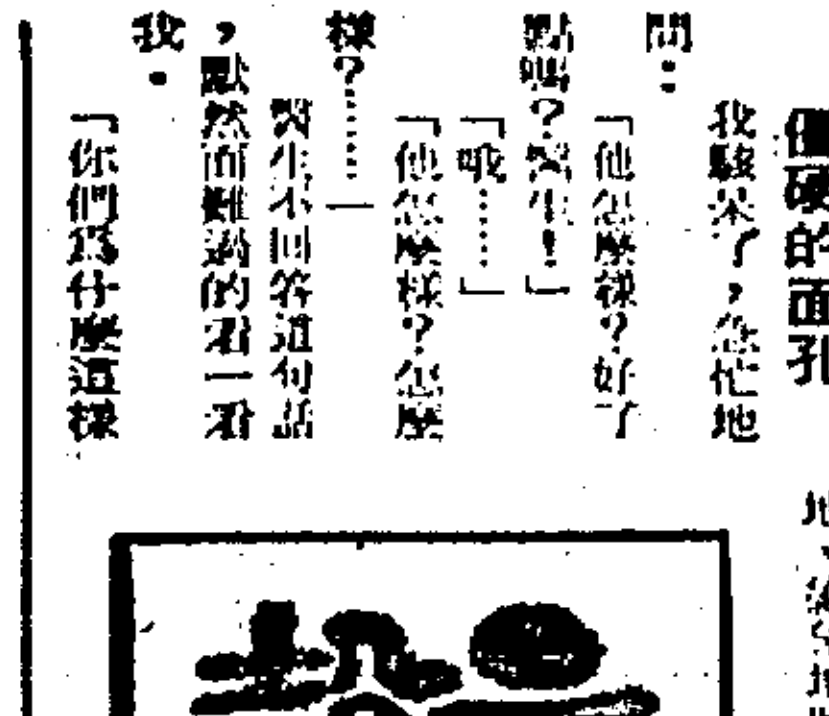 僵硬的面孔
我駭呆了，急忙地
問：
「他怎麼樣？好了
點嗎？醫生！」
「哦……」
「他怎麼樣？怎麼
樣？………」
醫生不回答這句話
，默然而難過的看一看
我。
「你們爲什麼這樣